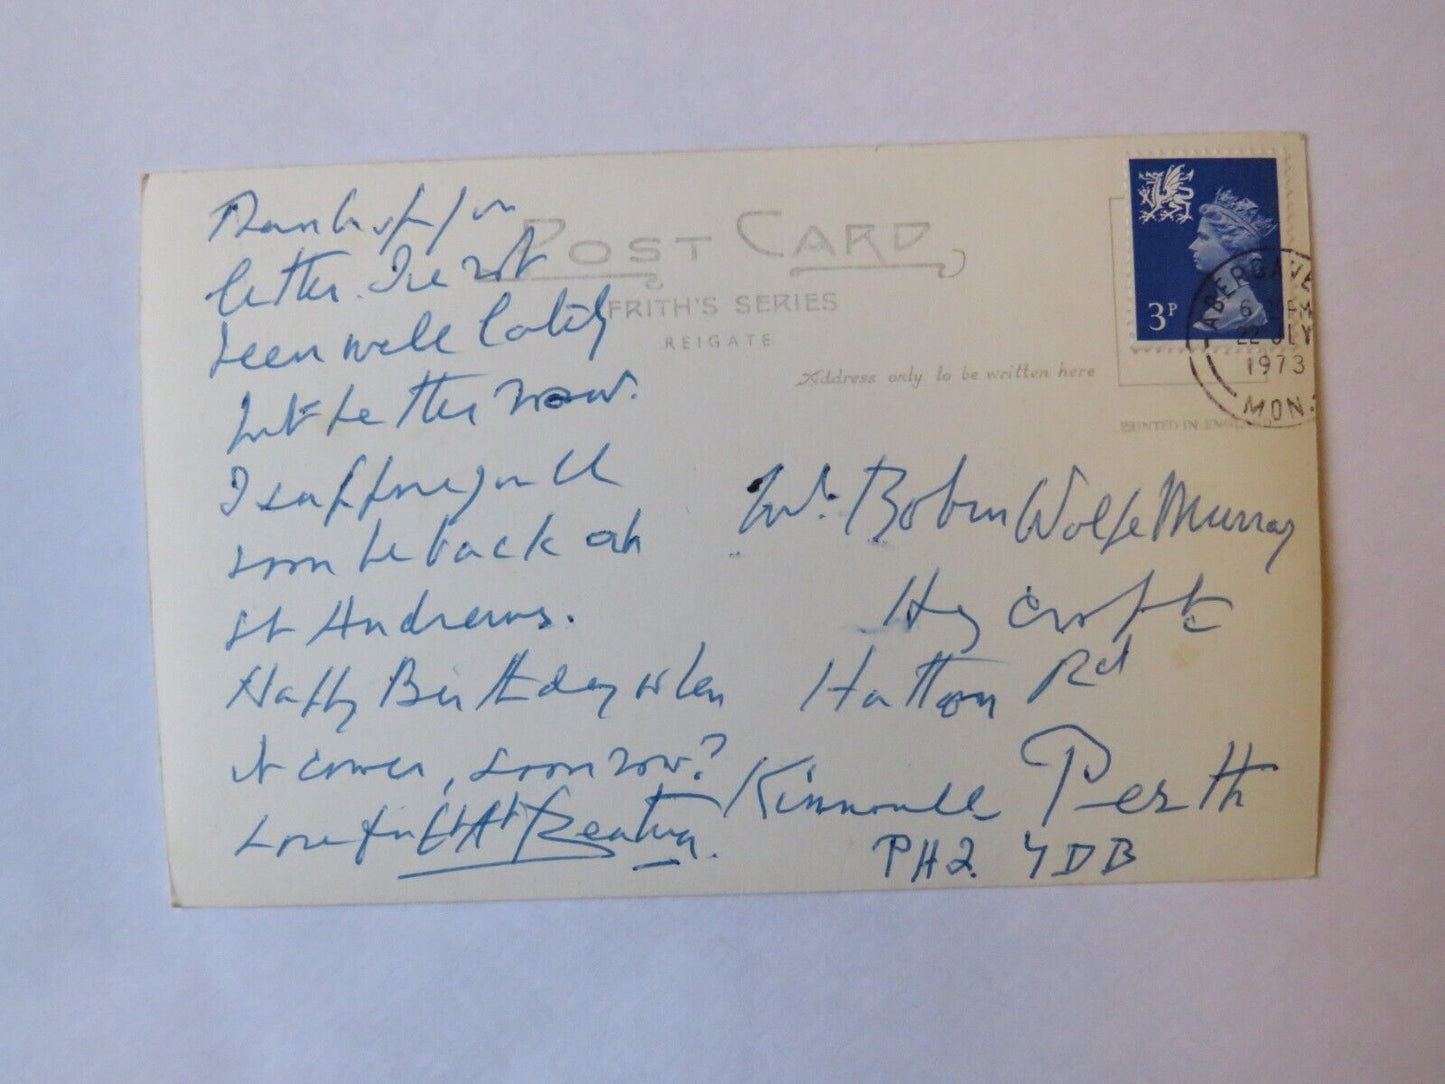 Thanks for yr
letter. I've not
been well lately
but better now.
I suppose you'll
soon be back at
St Andrews.
Happy Birthday when
it comes, soon now?
Love from
POST CARD
FRITH'S SERIES
REIGATE
Address only to be written here
3P
ABERGAVE
6
22 JLY
1973
MON.
PRINTED IN ENGLAND
Robin Wolfe Murray
Hay Croft
Hatton Rd
Kinnoull Perth
PH2 7DB